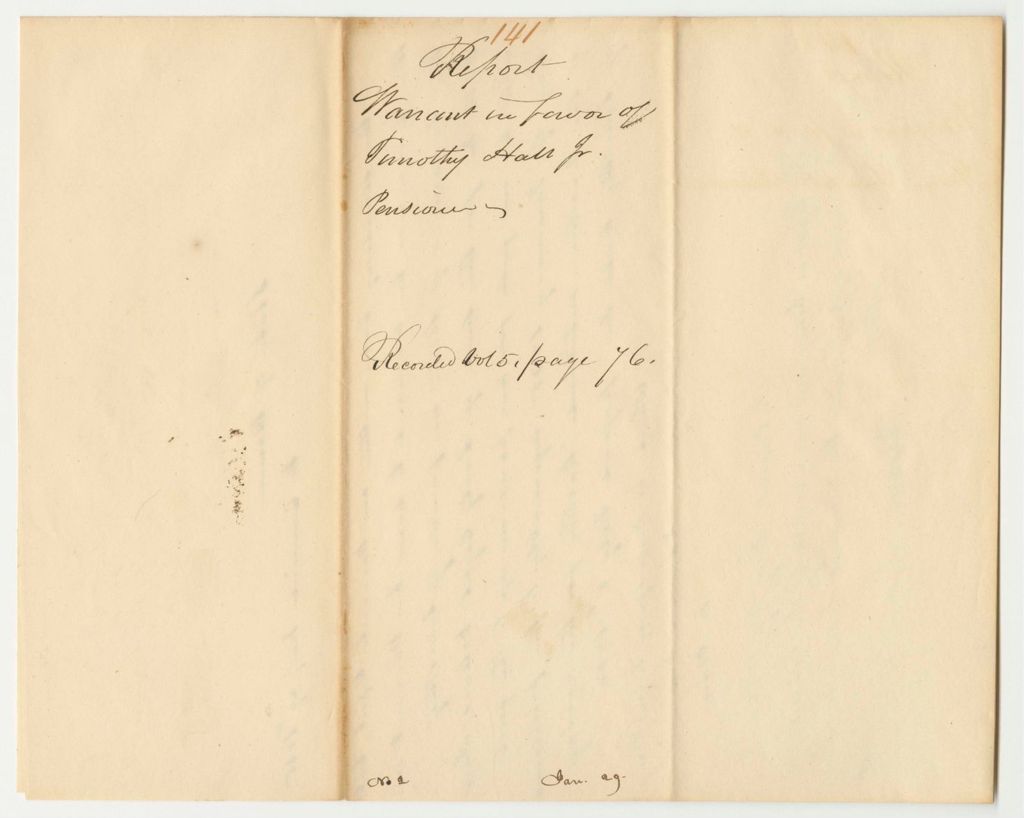 141
Report
Warrant in favor of
Timothy Hall Jr.
Pensioner
Recorded Vol 5, page 76.
No 2 Jan. 29.